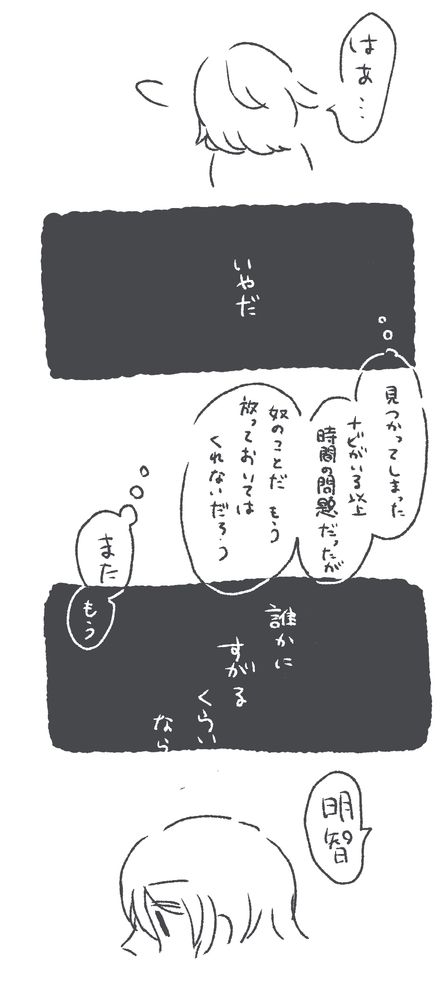 はぁ…
いやだ
見つかってしまった
ナビがいる以上
時間の問題だったが
奴のことだ もう
放っておいては
くれないだろう
また
もう
誰かに
すがる
くらい
なら
明智